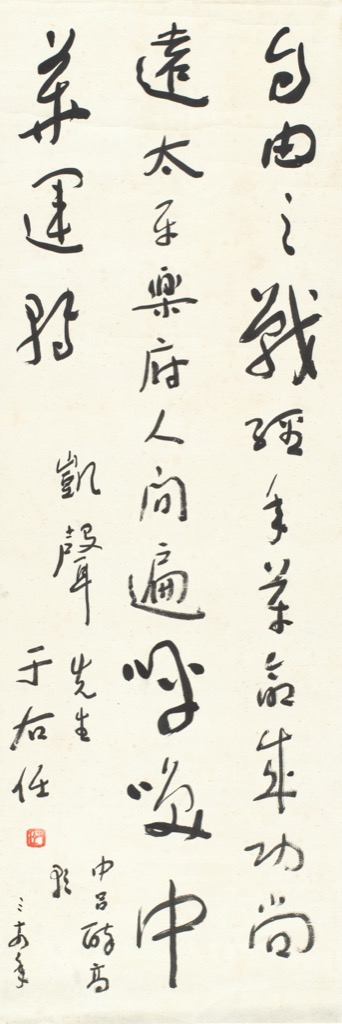 自由之戰經年革命成功尚
遠太平樂府人間遍呼喚中
華運轉
凱聲先生
于右任
中呂醉高
歌
三年